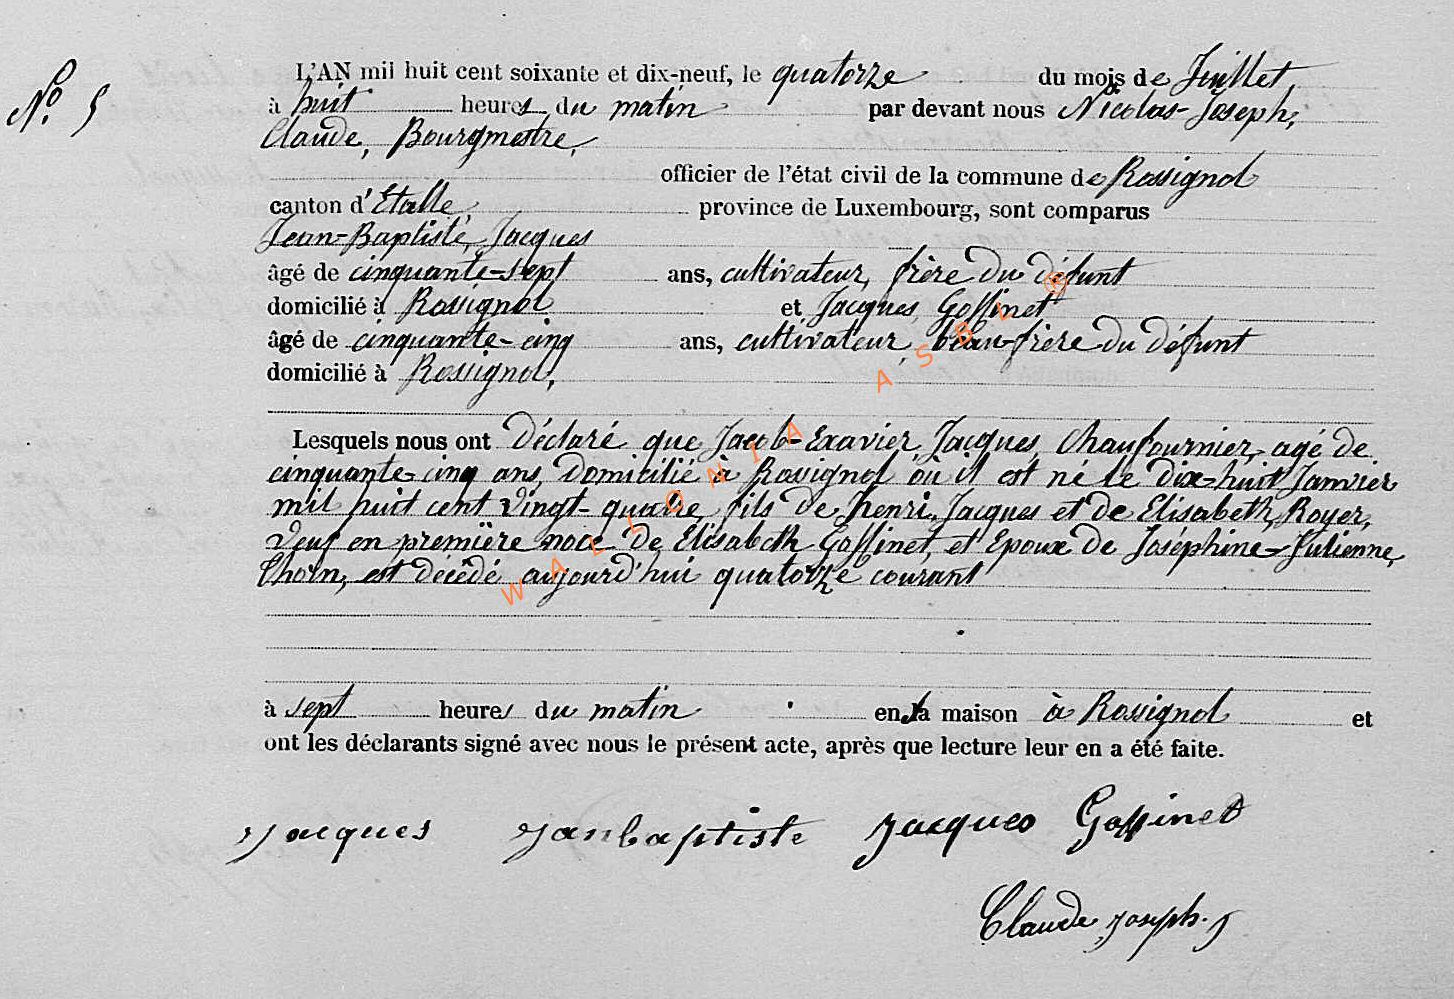 No. 5
L'AN mil huit cent soixante et dix-neuf, le quatorze du mois de Juillet,
à huit heures du matin par devant nous Nicolas-Joseph,
Claude, Bourgmestre,
officier de l'état civil de la commune de Rossignol
canton d'Etalle province de Luxembourg, sont comparus
Jean-Baptiste, Jacques
âgé de cinquante-sept ans, cultivateur, frère du défunt
domicilié à Rossignol et Jacques Goffinet
âgé de cinquante-cinq ans, cultivateur, beau-frère du défunt
domicilié à Rossignol,
Lesquels nous ont déclaré que Jacob-Exavier, Jacques, chaufournier, agé de
cinquante-cinq ans, domicilié à Rossignol où il est né le dix-huit Janvier
mil huit cent vingt-quatre, fils de henri, Jacques et de Elisabeth, Royer,
veuf en première noce de Elisabeth Goffinet, et Epoux de Joséphine-Julienne,
thoin, est décédé aujourd'hui quatorze courant
à sept heures du matin en sa maison à Rossignol et
ont les déclarants signé avec nous le présent acte, après que lecture leur en a été faite.
Jacques Janbaptiste Jacques Goffinet
Claude Joseph.
WALLONIA ASBL ®